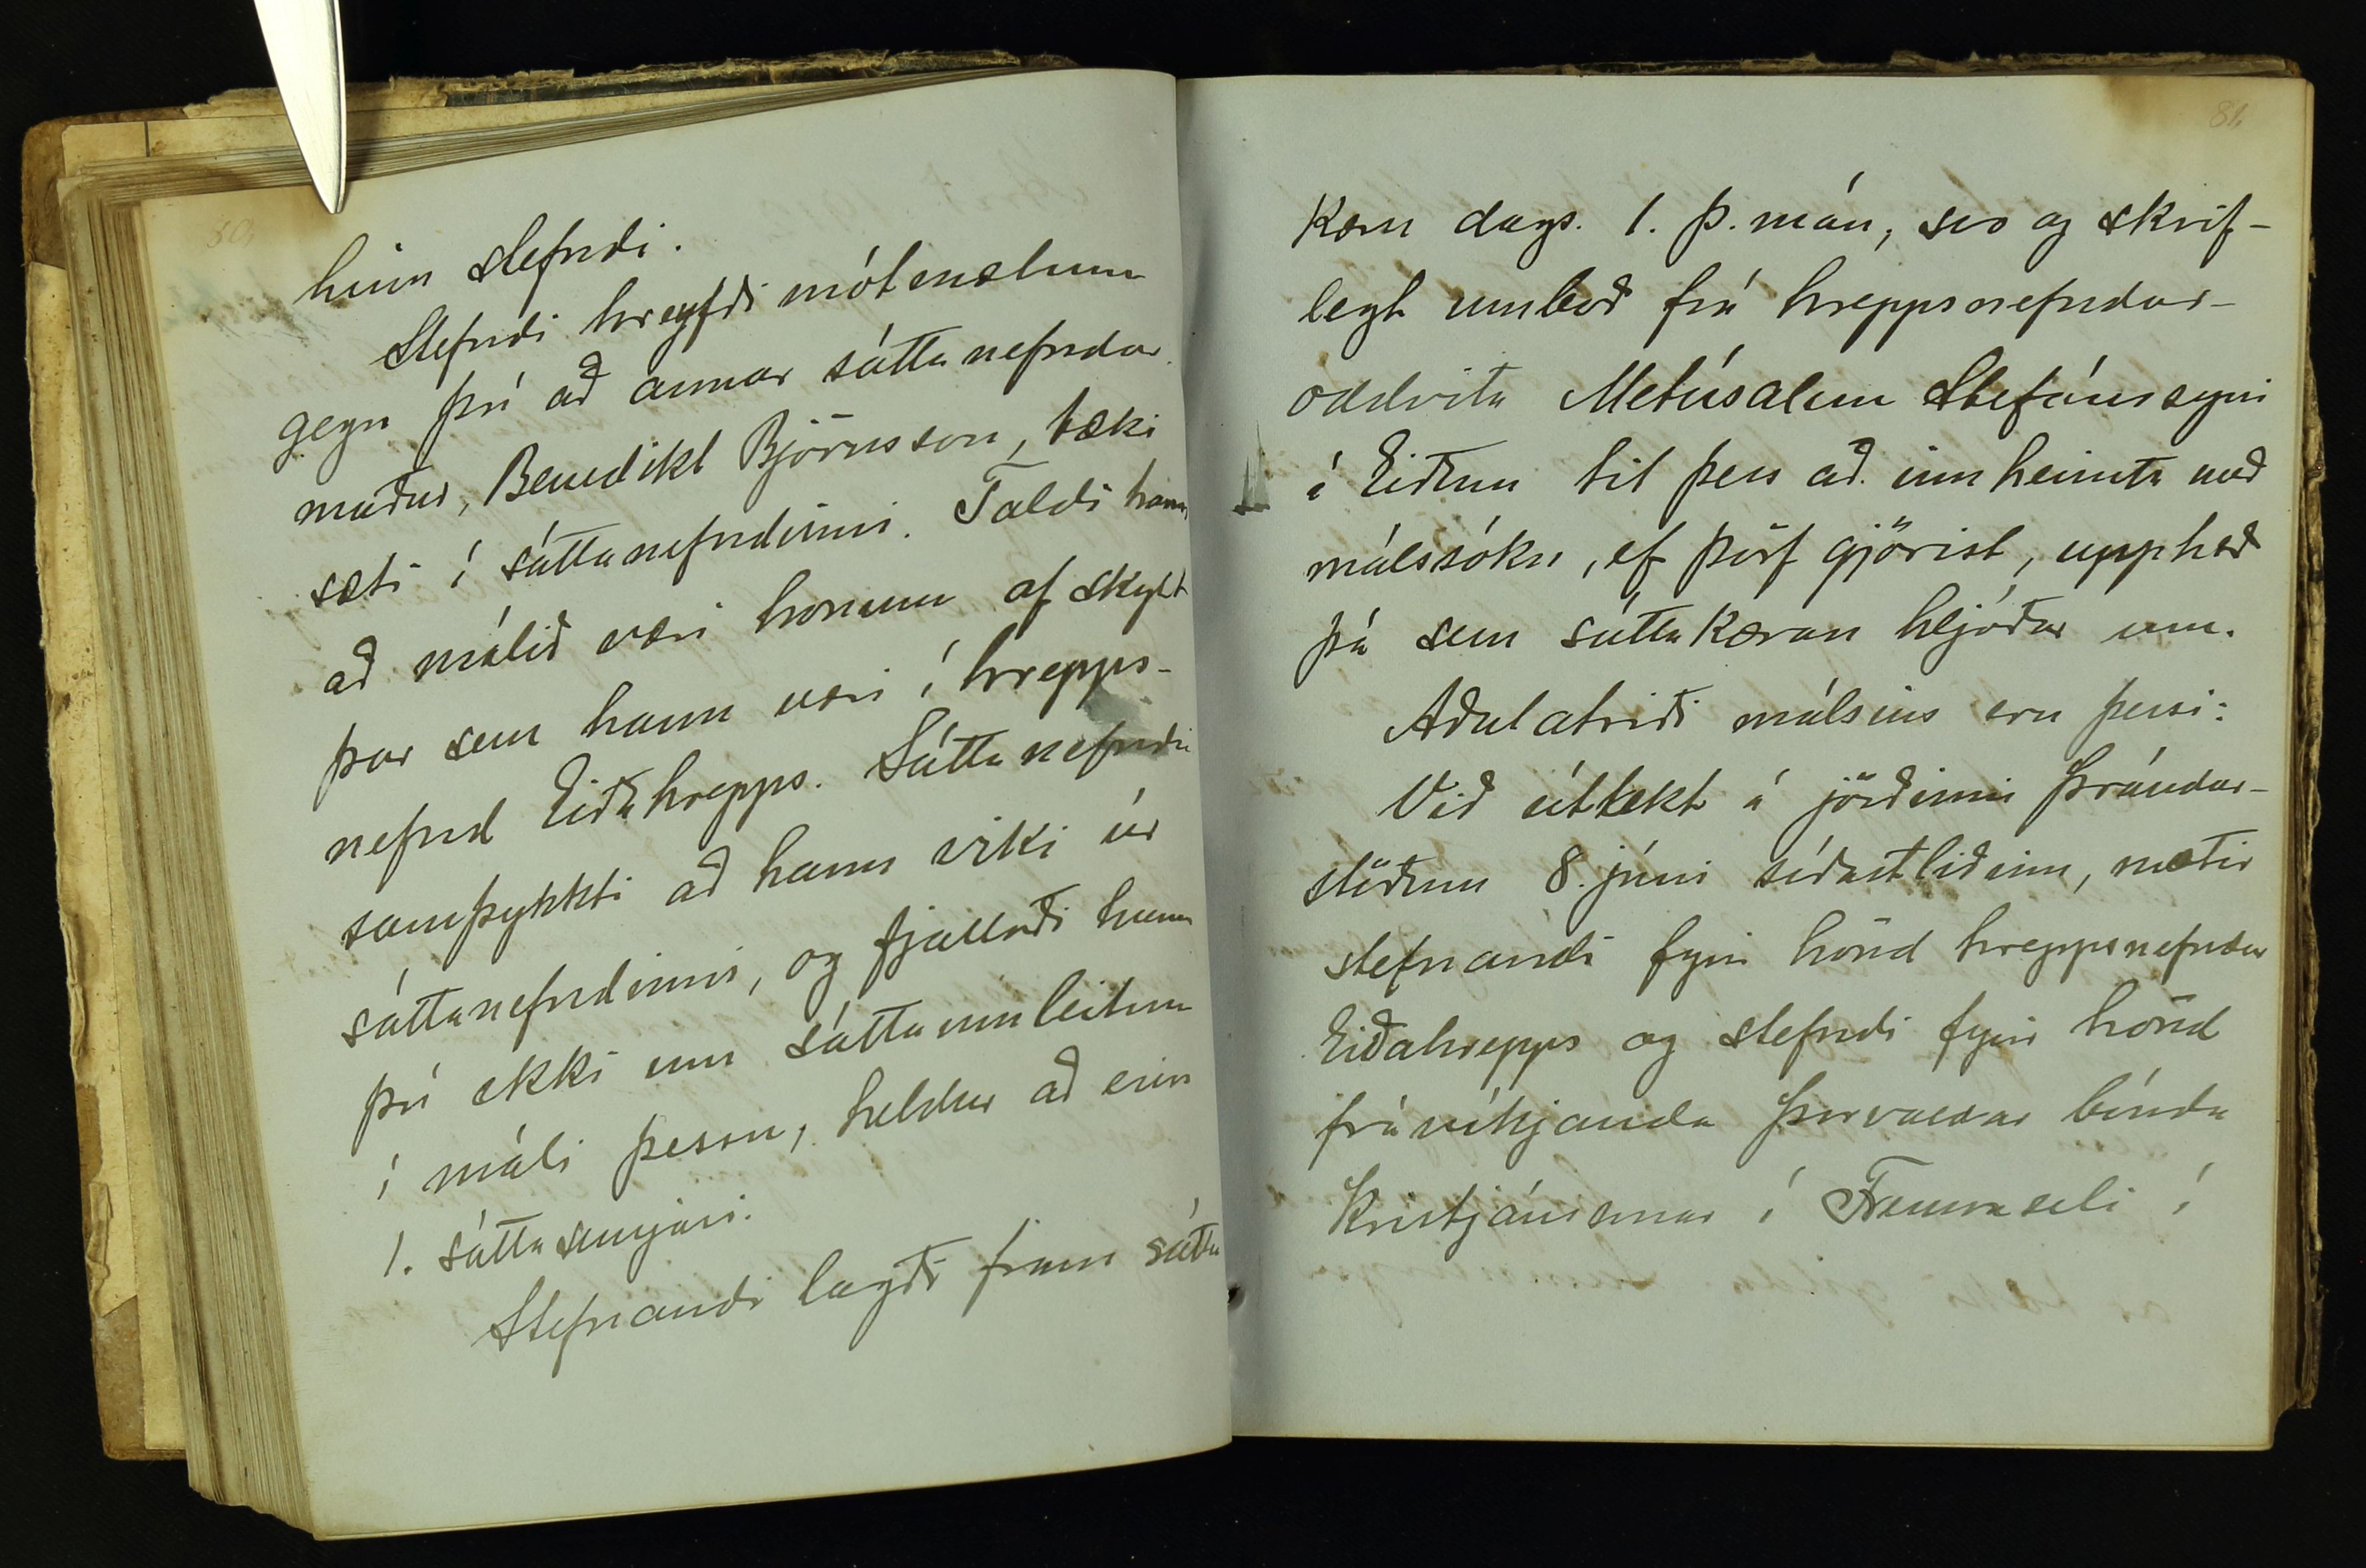 80,
hinn stefndi.
Stefndi hreyfði mótmælum
gegn því að annar sáttanefndar
maður, Benedikt Björnsson, tæki
sæti í sáttanefndinni. Taldi hann
að málið væri honum of skylt
þar sem hann væri í hrepps-
nefnd Eiðahrepps. Sáttanefndin
samþykkti að hann viki úr
sáttanefndinni, og fjallaði hann
því ekki um sáttaumleitun
í máli þessu, heldur að eins
1. sáttasemjari.
Stefnandi lagði fram sátta
81.
kæru dags. 1. þ. mán, svo og skrif-
legt umboð frá hreppsnefndar-
oddvita Metúsalem Stefánssyni
í Eiðum til þess að innheimta með
málssókn, ef þörf gjörist, upphæð
þá sem sáttakæran hljóðar um.
Aðalatriði málsins eru þessi:
Við úttekt á jörðinni Þrándar-
stöðum 8. júni síðastliðinn, mætir
stefnandi fyrir hönd hreppsnefndar
Eiðahrepps og stefndi fyrir hönd
frávíkjanda Þorvaldar bónda
Kristjánssonar í Fremraseli í